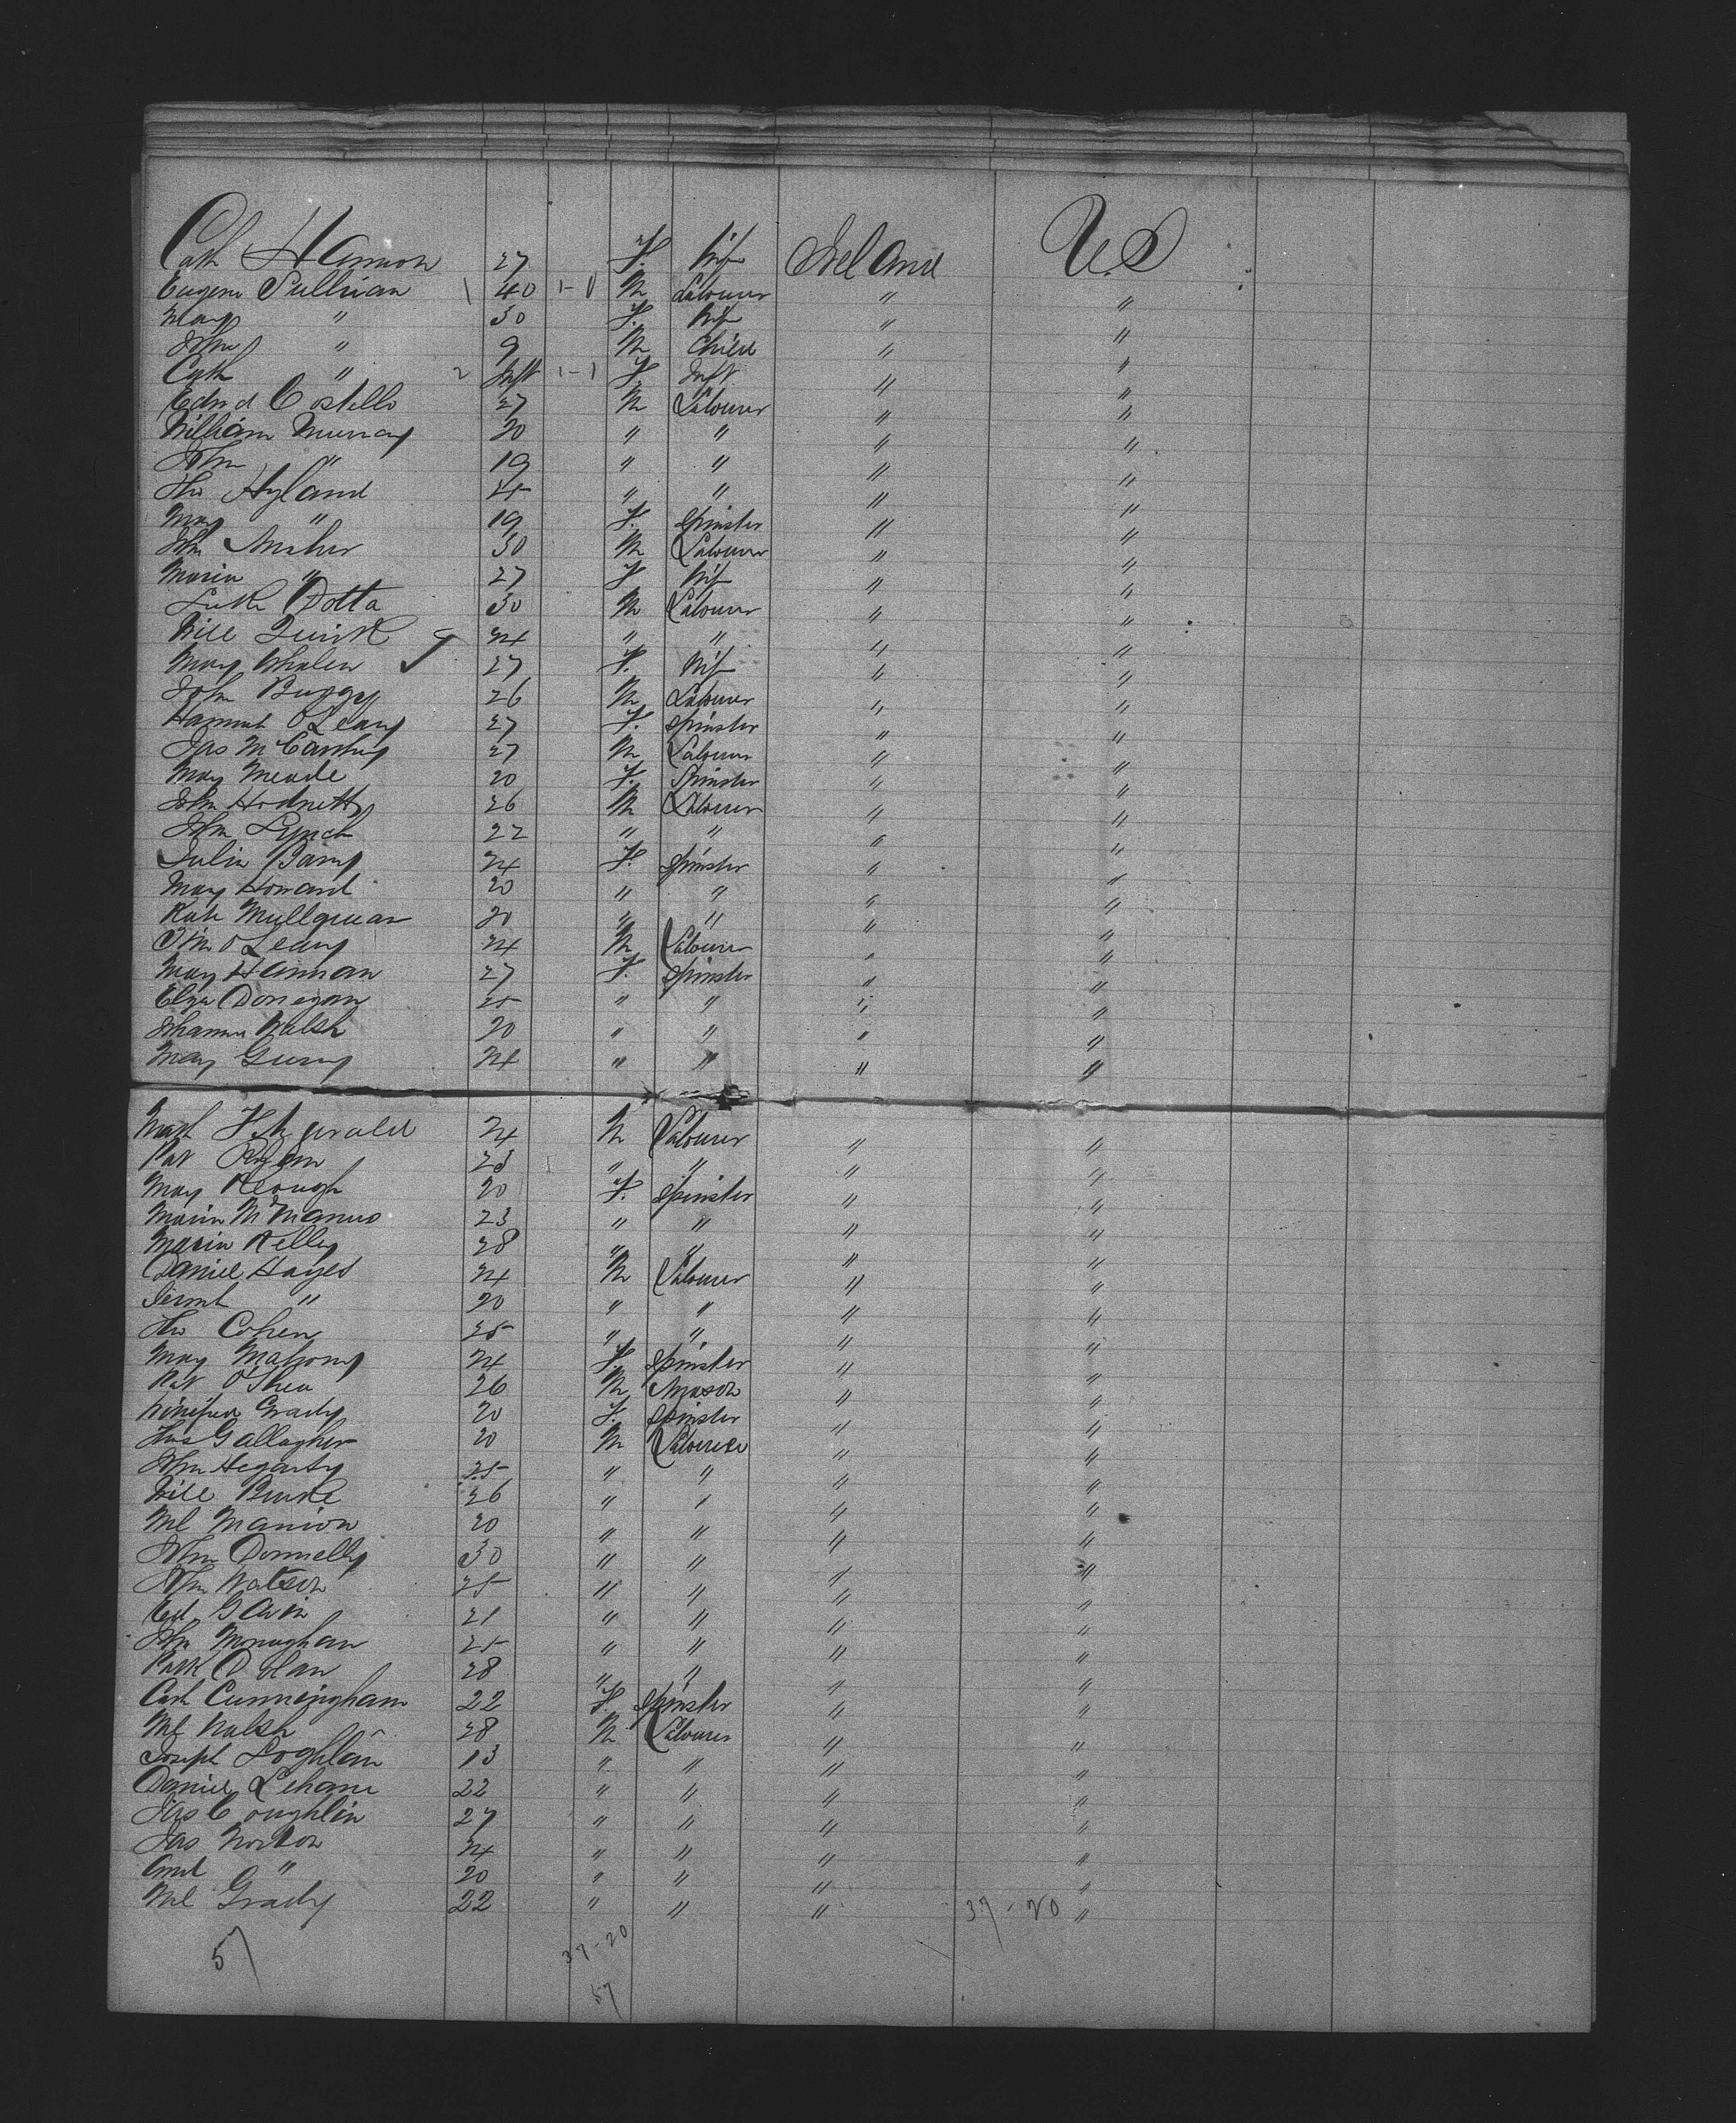 Cath Hannon 27 F. Wife Ireland U.S
Eugene Sullivan 1 40 1-0 M Labourer " "
Mary " 30 F. Wife " "
John " 9 M Child " "
Cath " 2 Inft 1-1 F Inft " "
Edwd Costello 27 M Labourer " "
William Murray 20 " " " "
John " 19 " " " "
Tho Hyland 25 " " " "
Mary " 19 F. Spinster " "
John 30 M Labourer " "
Maria " 27 F Wife " "
Luke 30 M Labourer " "
Will Quirk 24 " " " "
Mary Whalen 27 F. Wife " "
John Buggy 26 M Labourer " "
Hannah O'Leary 27 F. Spinster " "
Jas McCarthy 27 M Labourer " "
Mary Meade 20 F. Spinster " "
John Hodnett 26 M Labourer " "
John Lynch 22 " " " "
Julia Barry 24 F. Spinster " "
Mary Howard 20 " " " "
Kate 20 " " " "
Tim O'Leary 24 M Labourer " "
Mary Hannan 27 F. Spinster " "
Eliza Donegan 25 " " " "
Johanna Walsh 20 " " " "
Mary 24 " " " "
Fitzgerald 24 M Labourer " "
Pat Ryan 23 " " " "
Mary Keough 20 F. Spinster " "
Maria McManus 23 " " " "
Maria Kelley 28 " " " "
Daniel Hayes 24 M Labourer " "
Jermh " 20 " " " "
Tho Cohen 25 " " " "
Mary Mahony 24 F. Spinster " "
Pat O'Shea 26 M Mason " "
Winifred Grady 20 F. Spinster " "
Thos Gallagher 20 M Labourer " "
John Hegarty 25 " " " "
Will Burke 26 " " " "
Ml Manion 20 " " " "
John Donnelly 30 " " " "
John Watson 25 " " " "
Ed Gavin 21 " " " "
John Monaghan 25 " " " "
Patk Dolan 28 " " " "
Cath Cunningham 22 F. Spinster " "
Ml Walsh 28 M Labourer " "
Joseph Loghlan 13 " " " "
Daniel Lehane 22 " " " "
Jas Coughlin 27 " " " "
Jas Norton 24 " " " "
" 20 " " " "
Ml Grady 22 " " " 37-20 "
57 37-20
57